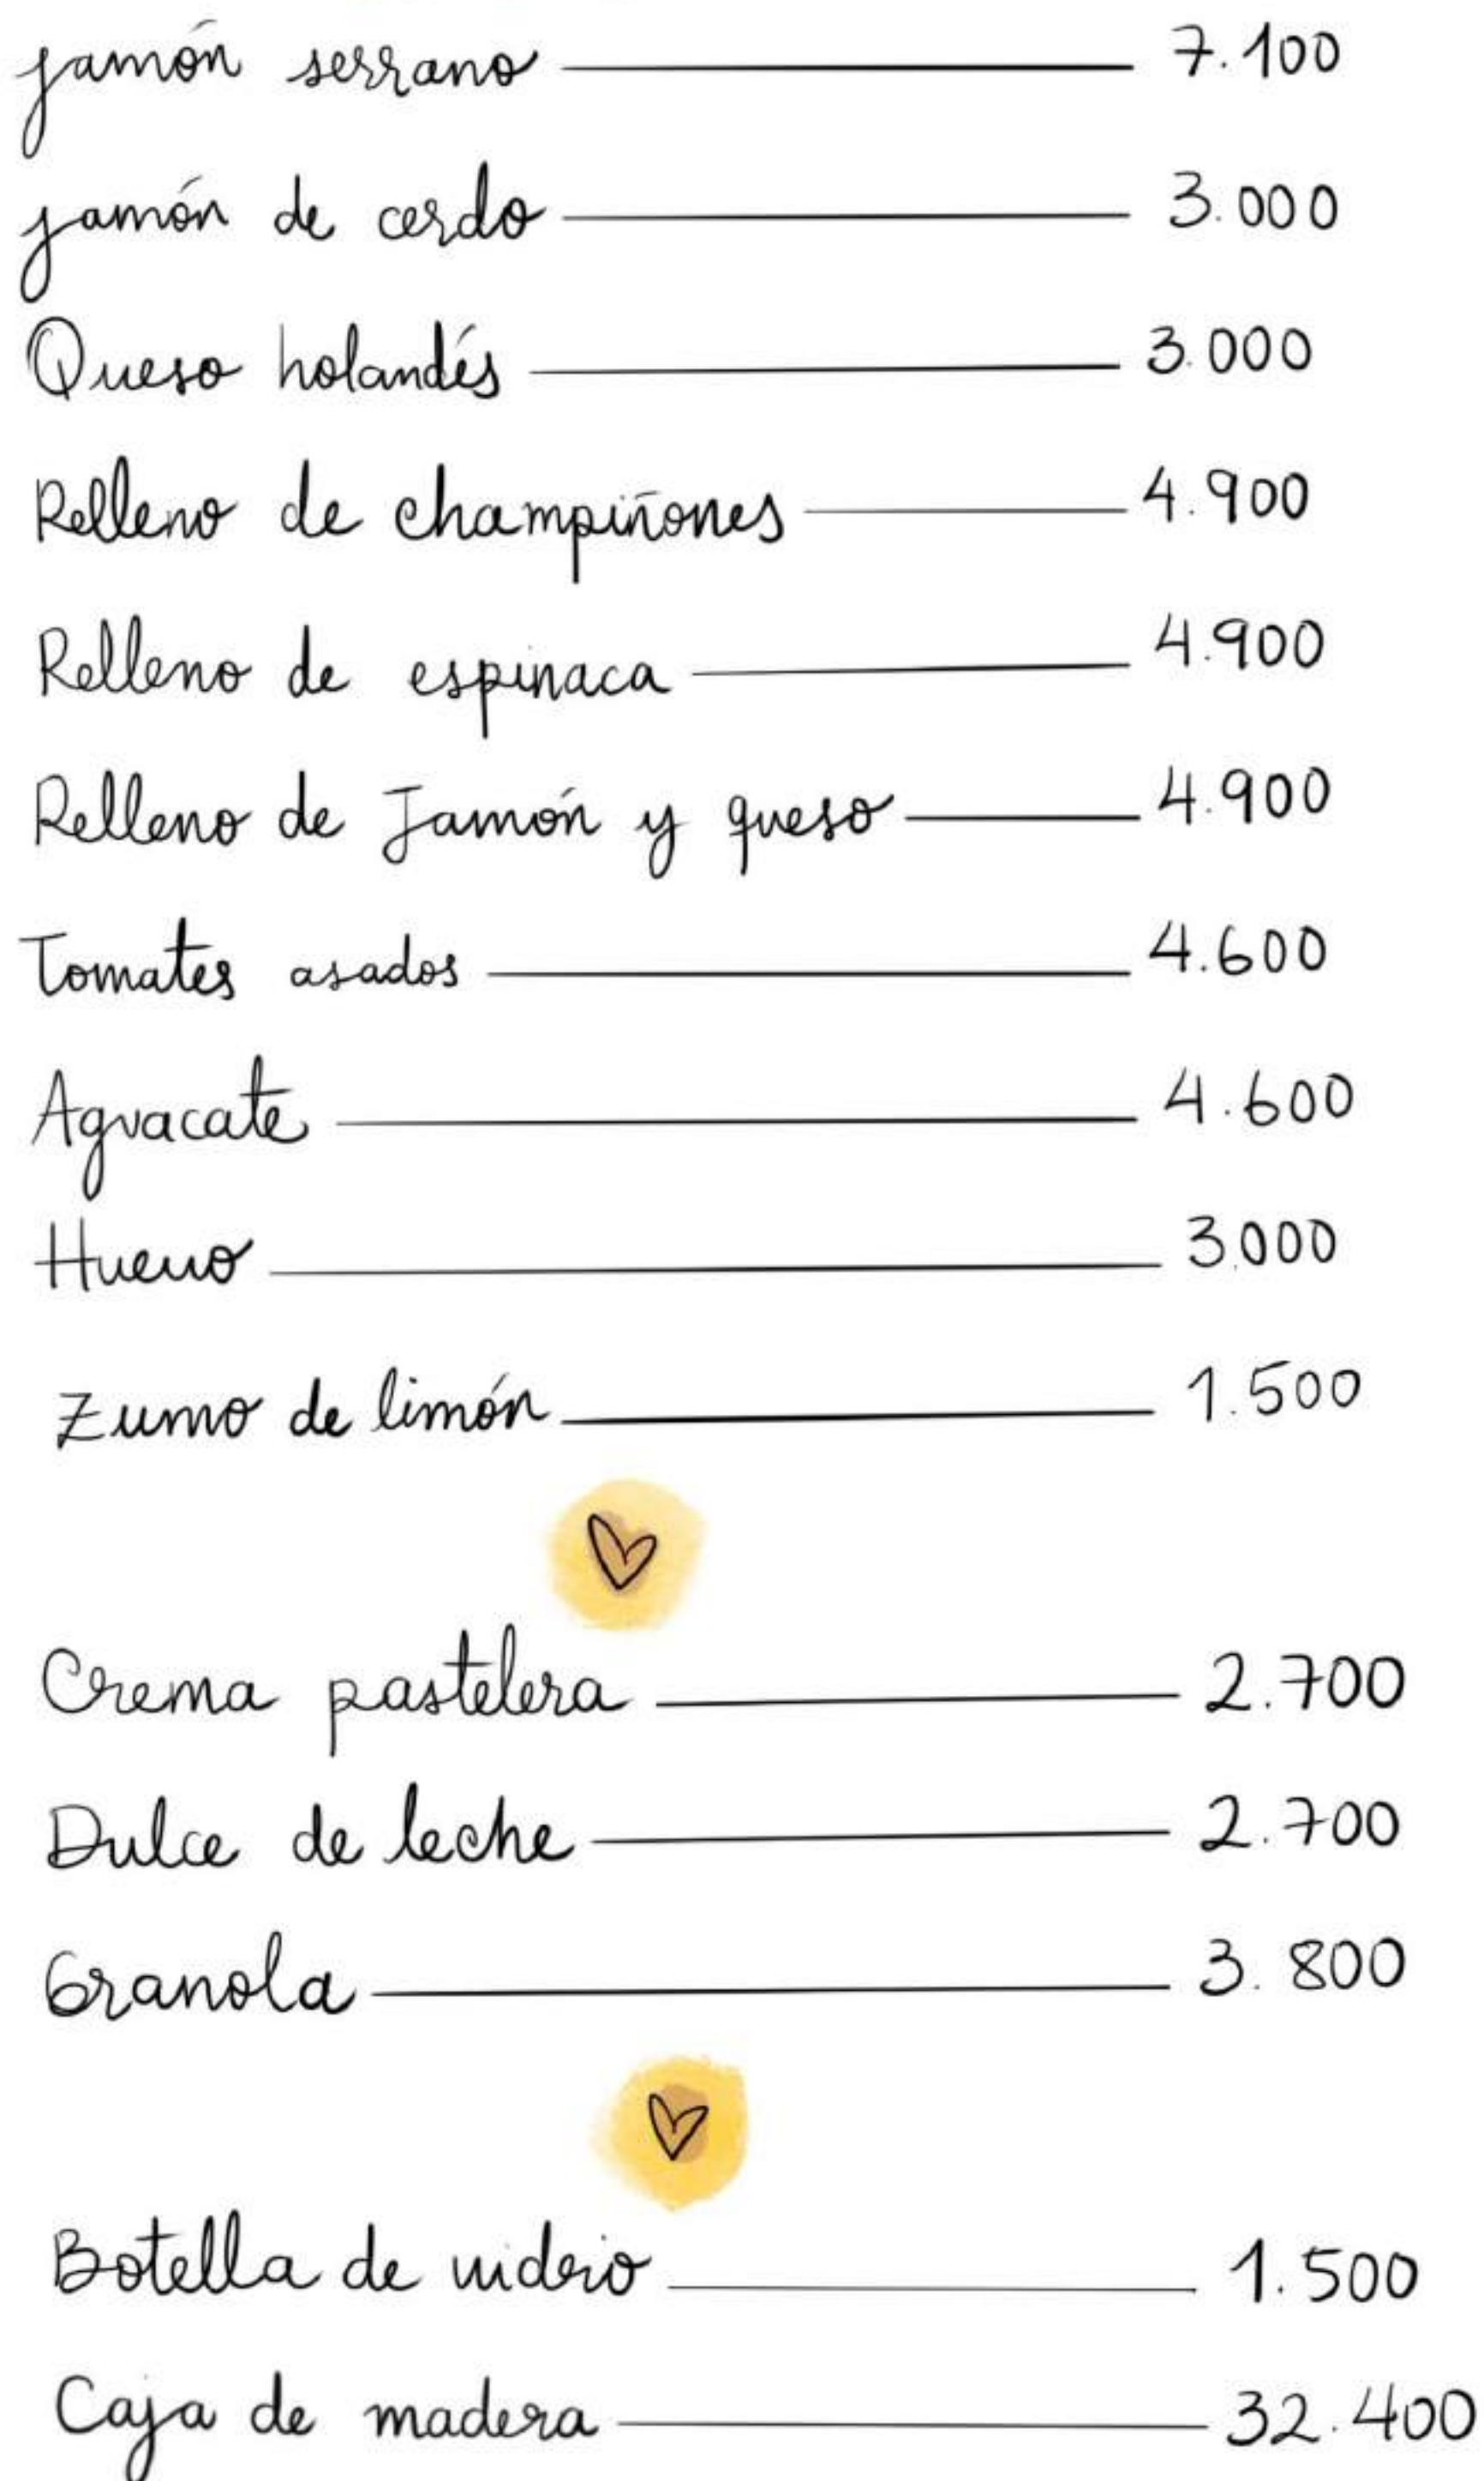 Jamón serrano 7.100
Jamón de cerdo 3.000
Queso holandés 3.000
Relleno de champiñones 4.900
Relleno de espinaca 4.900
Relleno de Jamón y queso 4.900
Tomates asados 4.600
Aguacate 4.600
Huevo 3.000
Zumo de limón 1.500
Crema pastelera 2.700
Dulce de leche 2.700
Granola 3.800
Botella de vidrio 1.500
Caja de madera 32.400